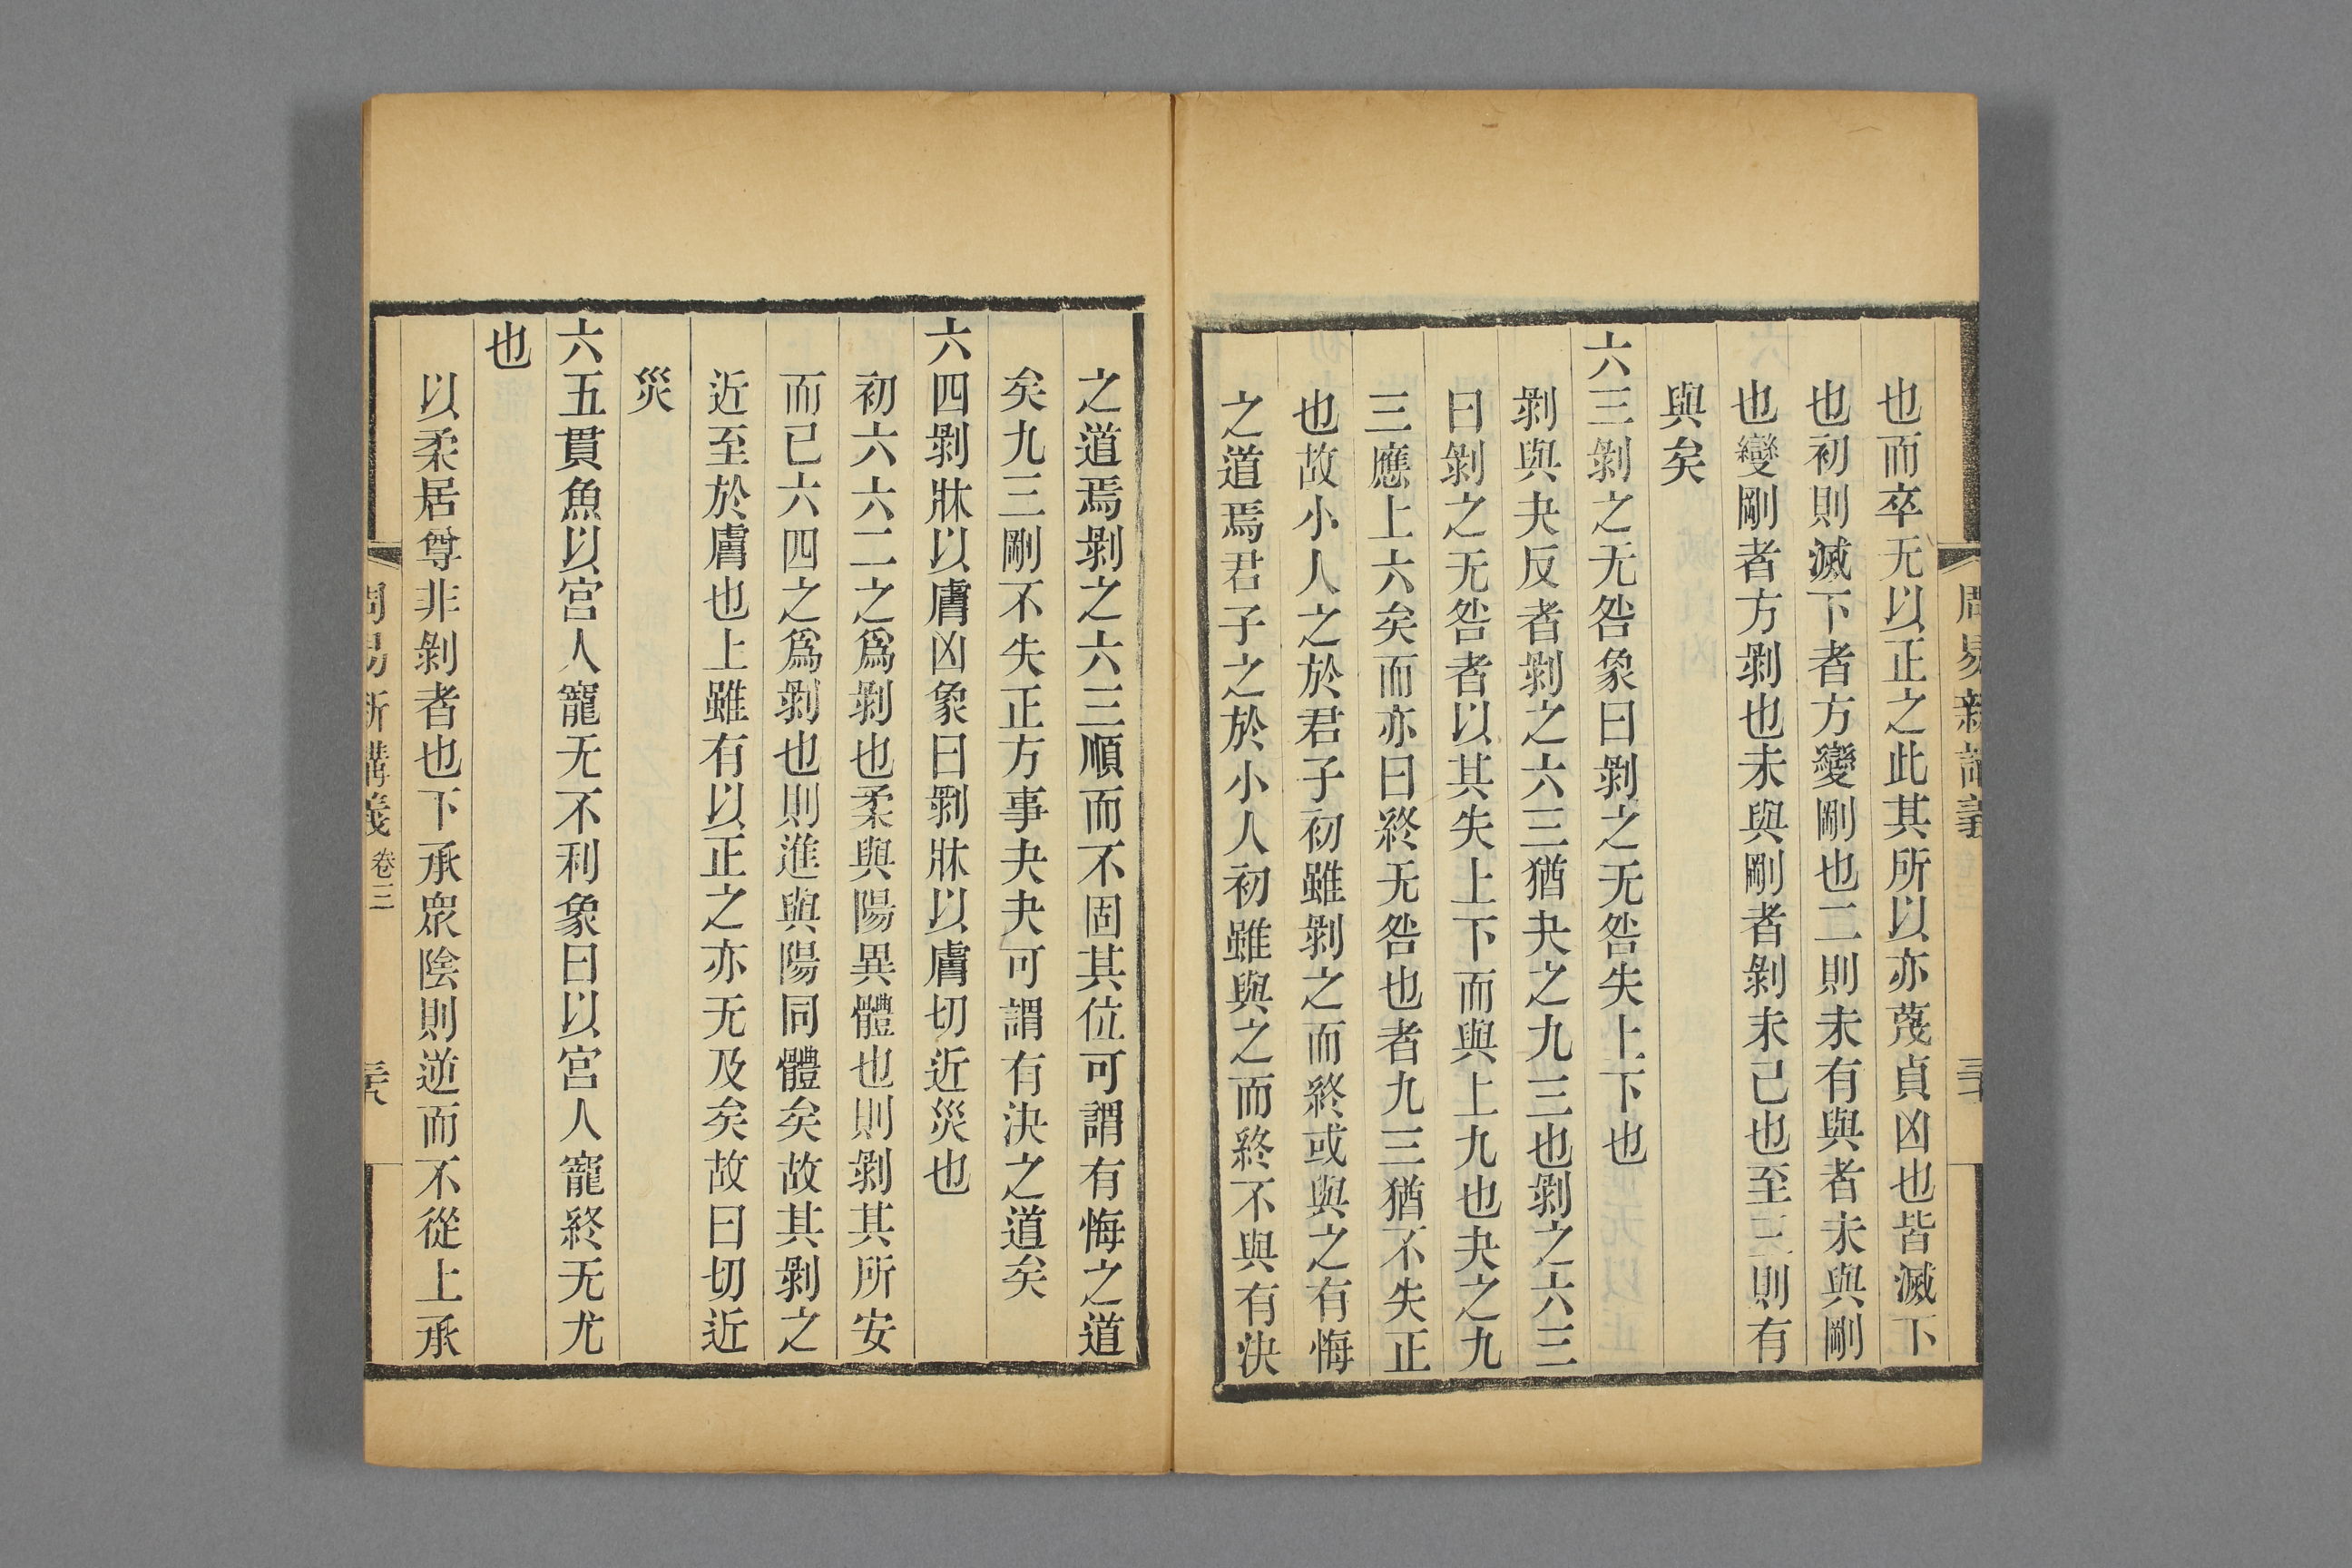 也而卒无以正之此其所以亦蔑貞凶也皆滅下
也初則滅下者方變剛也二則未有與者未與剛
也變剛者方剝也未與剛者剝未已也至三則有
與矣
六三剝之无咎象曰剝之无咎失上下也
剝與夬反者剝之六三猶夬之九三也剝之六三
曰剝之无咎者以其失上下而與上九也夬之九
三應上六矣而亦曰終无咎也者九三猶不失正
也故小人之於君子初雖剝之而終或與之有悔
之道焉君子之於小人初雖與之而終不與有決
之道焉剝之六三順而不固其位可謂有悔之道
矣九三剛不失正方事夬夬可謂有決之道矣
六四剝牀以膚凶象曰剝牀以膚切近災也
初六六二之爲剝也柔與陽異體也則剝其所安
而已六四之爲剝也則進與陽同體矣故其剝之
近至於膚也上雖有以正之亦无及矣故曰切近
災
六五貫魚以宮人寵无不利象曰以宮人寵終无尤
也
以柔居尊非剝者也下承眾陰則逆而不從上承
周易新講義 卷三